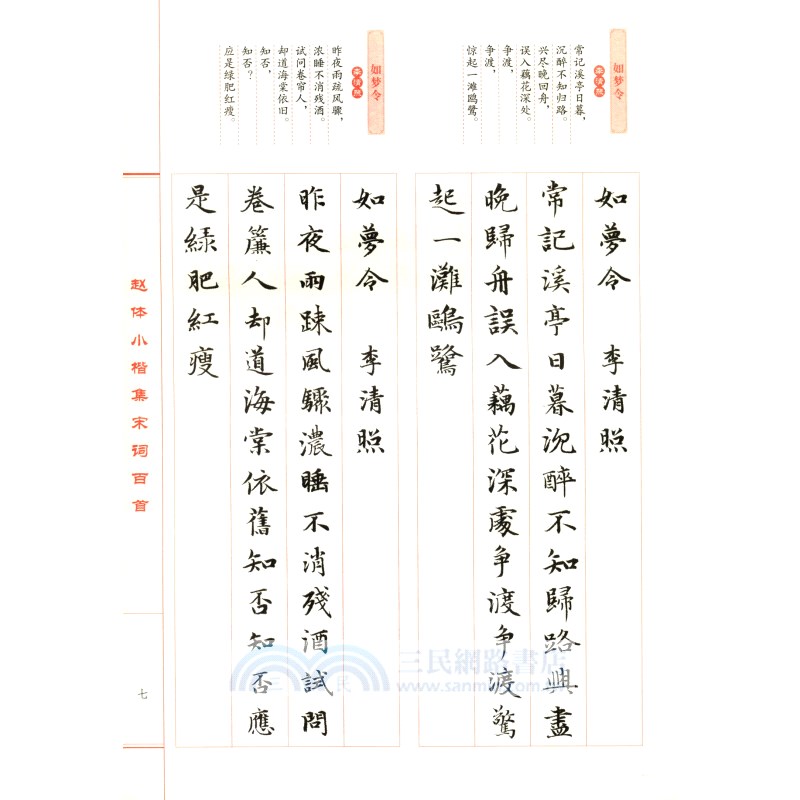 如梦令
李清照
常记溪亭日暮，
沉醉不知归路。
兴尽晚回舟，
误入藕花深处。
争渡，
争渡，
惊起一滩鸥鹭。
如夢令 李清照
常記溪亭日暮沉醉不知歸路興盡
晚歸舟誤入藕花深處争渡争渡驚
起一灘鷗鷺
如梦令
李清照
昨夜雨疏风骤，
浓睡不消残酒。
试问卷帘人，
却道海棠依旧。
知否，
知否？
应是绿肥红瘦。
如夢令 李清照
昨夜雨疎風驟濃睡不消殘酒試問
卷簾人却道海棠依舊知否知否應
是緑肥紅瘦
赵体小楷集宋词百首
七
三民網路書店
www.sanmin.com.tw
三民